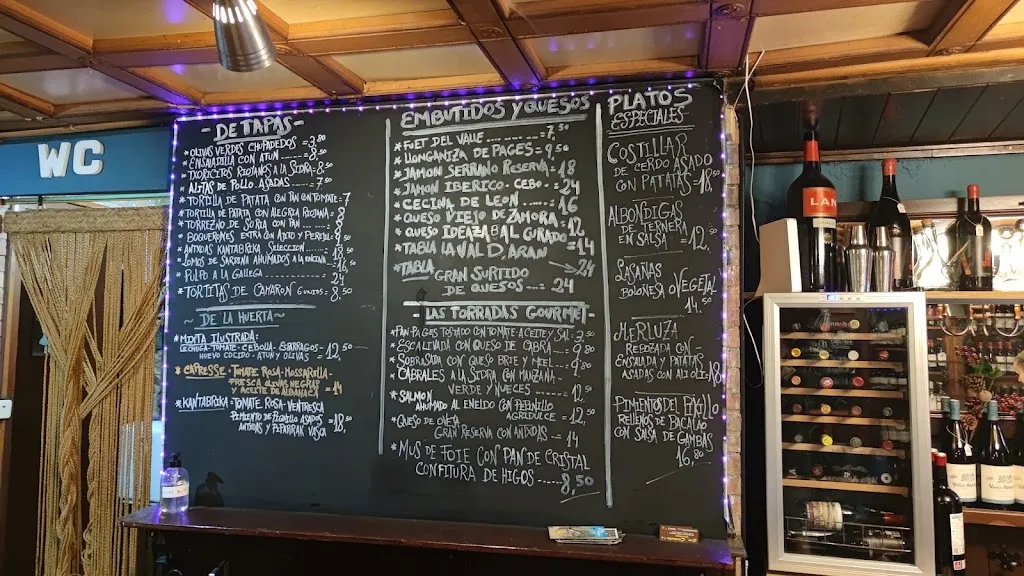 WC
- DE TAPAS -
* OLIVAS VERDS CHUPADEDOS = 3,80
* ENSALADILLA CON ATUN ..... 8,50
* TXORICITOS RIOJANOS A LA SIDRA - 8
* ALITAS DE POLLO ASADAS ..... 7,50
* TORTILLA DE PATATA CON PAN CON TOMATE - 7
* TORTILLA DE PATATA CON ALEGRIA RIOJANA - 8
* TORREZNO DE SORIA CON PAN
* BOQUERONES EXTRA CON AJITO Y PEREJIL
* ANTXOAS KANTABRIKA SELECCION
* LOMOS DE SARDINA AHUMADOS A LA ENCINA
* PULPO A LA GALLEGA
* TORTITAS DE CAMARON 8,50
- DE LA HUERTA -
* MIXTA ILUSTRADA:
LECHUGA - TOMATE - CEBOLLA - ESPARRAGOS
HUEVO COCIDO - ATUN Y OLIVAS = 12,50
* CAPRESSE - TOMATE ROSA - MOSSARELLA
FRESCA OLIVAS NEGRAS
Y ACEITE DE ALBAHACA = 14
* KANTABRIKA - TOMATE ROSA - VENTRESCA
PIMIENTO DE PIQUILLO ASADOS
ANTXOAS Y PIPARRAK VASCA 18,50
EMBUTIDOS Y QUESOS
* FUET DEL VALLE ......... = 7,50
* LLONGANIZA DE PAGES = 9,50
* JAMON SERRANO RESERVA = 18
* JAMON IBERICO - CEBO - = 24
* CECINA DE LEON ..... = 16
* QUESO VIEJO DE ZAMORA = 12
* QUESO IDEAZABAL CURADO = 12
* TABLA LA VAL D, ARAN = 14
24
* TABLA GRAN SURTIDO
DE QUESOS — 24
- LAS TORRADAS GOURMET -
* PAN PAGES TOSTADO CON TOMATE - ACEITE Y SAL - 3,50
* ESCALIVADA CON QUESO DE CABRA ... = 9,80
* SOBRASADA CON QUESO BRIE Y MIEL ... = 9,80
* CABRALES A LA SIDRA CON MANZANA
VERDE Y NUECES ..... = 12,50
* SALMON
AHUMADO AL ENELDO CON PEPINILLO
AGRIDULCE = 12,50
* QUESO DE OVEJA
GRAN RESERVA CON ANXOAS = 14
* MUS DE FOIE CON PAN DE CRISTAL
CONFITURA DE HIGOS ...... 8,50
PLATOS
ESPECIALES
COSTILLAR
DE CERDO ASADO
CON PATATAS - 18,50
ALBONDIGAS
DE TERNERA
EN SALSA = 12,50
LASAÑAS
BOLOÑESA O VEGETAL
14,50
MERLUZA
REBOZADA CON
ENSALADA Y PATATAS
ASADAS CON ALIOLI = 18
PIMIENTOS DEL PIQUILLO
RELLENOS DE BACALAO
CON SALSA DE GAMBAS
16,80
LAN